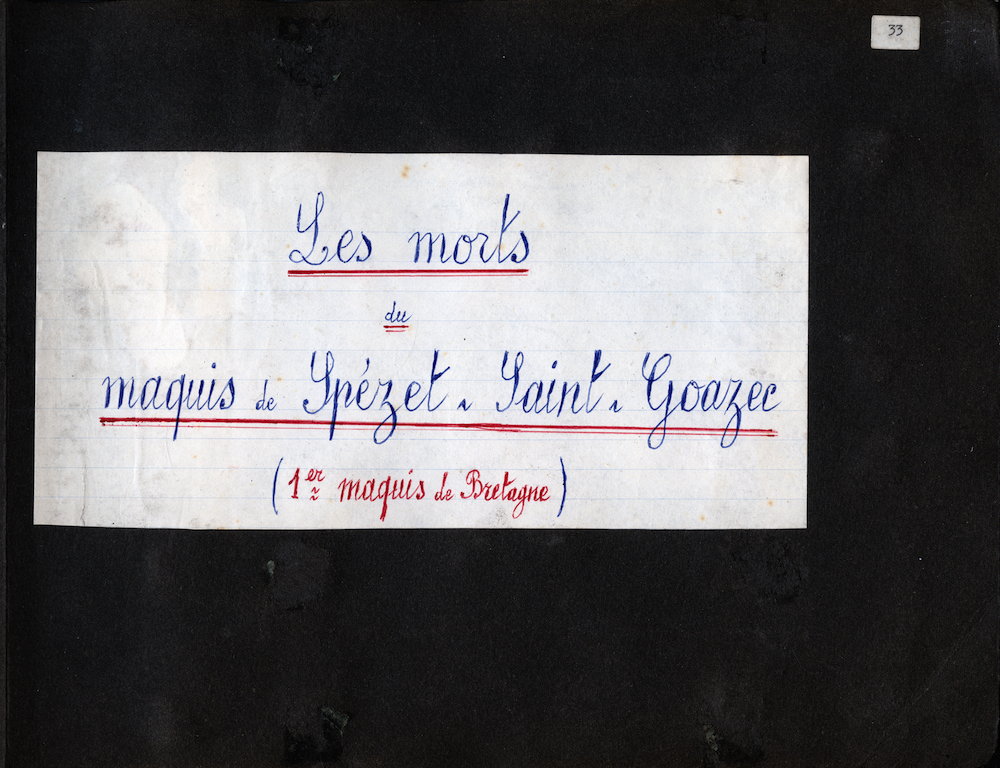 33
Les morts
du
maquis de Spézet - Saint - Goazec
(1er maquis de Bretagne)